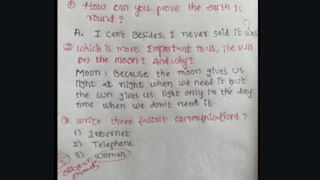 ① How can you prove the earth is
round?
A. I can't. Besides, I never said it was
② which is more Important to us, the sun
or the moon? And why?
Moon: Because the moon gives us
light at night when we need it but
the sun gives us light only in the day
time when we don't need it
③ write three fastest communications?
1) Internet
2) Telephone
3) Women